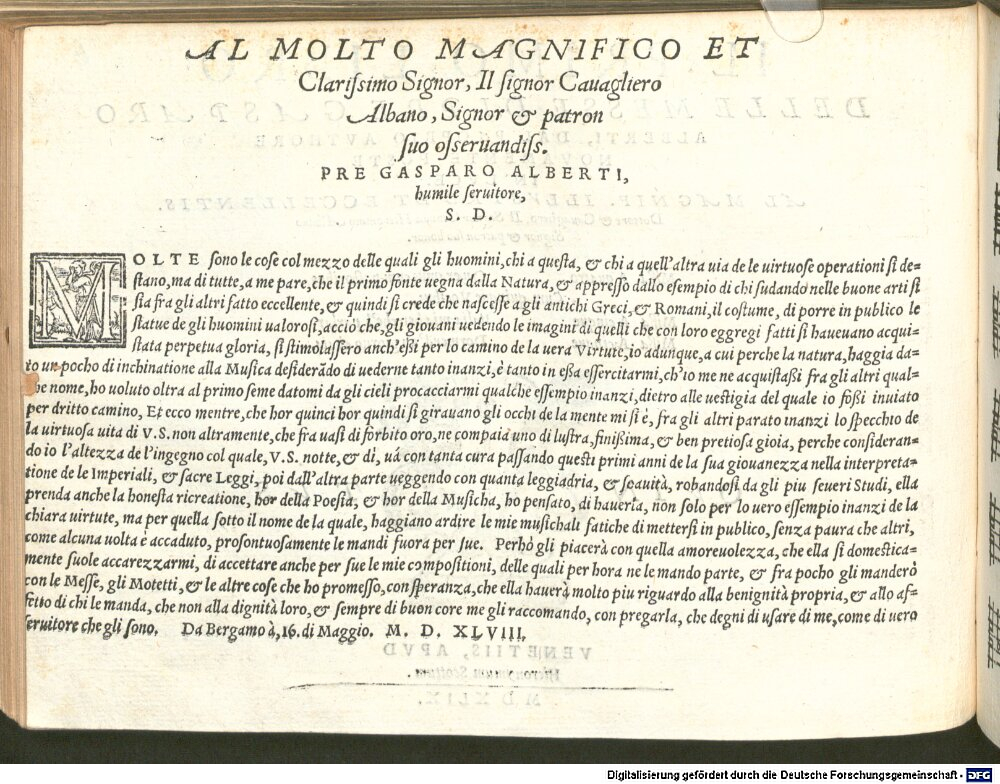 AL MOLTO MAGNIFICO ET
Clarißimo Signor, Il signor Cauagliero
Albano, Signor & patron
suo osseruandiss.
PRE GASPARO ALBERTI,
humile seruitore,
S. D.
MOLTE sono le cose col mezzo delle quali gli huomini, chi a questa, & chi a quell'altra uia de le uirtuose operationi si de=
stano, ma di tutte, a me pare, che il primo fonte uegna dalla Natura, & appresso dallo esempio di chi sudando nelle buone arti si
sia fra gli altri fatto eccellente, & quindi si crede che nascesse a gli antichi Greci, & Romani, il costume, di porre in publico le
statue de gli huomini ualorosi, acciò che, gli giouani uedendo le imagini di quelli che con loro eggregi fatti si haueuano acqui=
stata perpetua gloria, si stimolassero anch'eßi per lo camino de la uera Virtute, io adunque, a cui perche la natura, haggia da=
to un pocho di inchinatione alla Musica desiderãdo di uederne tanto inanzi, è tanto in eßa essercitarmi, ch'io me ne acquistaßi fra gli altri qual=
che nome, ho uoluto oltra al primo seme datomi da gli cieli procacciarmi qualche essempio inanzi, dietro alle uestigia del quale io foßi inuiato
per dritto camino, Et ecco mentre, che hor quinci hor quindi si girauano gli occhi de la mente mi si è, fra gli altri parato inanzi lo specchio de
la uirtuosa uita di V.S. non altramente, che fra uasi di forbito oro, ne compaia uno di lustra, finißima, & ben pretiosa gioia, perche consideran=
do io l'altezza de l'ingegno col quale, V.S. notte, & dì, uà con tanta cura passando questi primi anni de la sua giouanezza nella interpreta=
tione de le Imperiali, & sacre Leggi, poi dall'altra parte ueggendo con quanta leggiadria, & soauità, robandosi da gli piu seueri Studi, ella
prenda anche la honesta ricreatione, hor della Poesia, & hor della Musicha, ho pensato, di hauerla, non solo per lo uero essempio inanzi de la
chiara uirtute, ma per quella sotto il nome de la quale, haggiano ardire le mie musichali fatiche di mettersi in publico, senza paura che altri,
come alcuna uolta è accaduto, prosontuosamente le mandi fuora per sue. Perhò gli piacerà con quella amoreuolezza, che ella si domestica=
mente suole accarezzarmi, di accettare anche per sue le mie compositioni, delle quali per hora ne le mando parte, & fra pocho gli manderò
con le Messe, gli Motetti, & le altre cose che ho promesso, con speranza, che ella hauerà molto piu riguardo alla benignità propria, & allo af=
fetto di chi le manda, che non alla dignità loro, & sempre di buon core me gli raccomando, con pregarla, che degni di usare di me, come di uero
seruitore che gli sono. Da Bergamo à, 16. di Maggio. M. D. XLVIII.
Digitalisierung gefördert durch die Deutsche Forschungsgemeinschaft - DFG